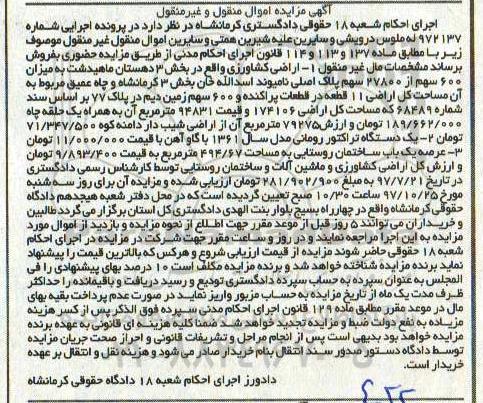 آگهی مزایده اموال منقول و غیرمنقول
اجرای احکام شعبه ۱۸ حقوقی دادگستری کرمانشاه در نظر دارد در پرونده اجرایی شماره
۹۷۲۱۳۷ له ملوس درویشی و سایرین علیه شیرین همتی و سایرین اموال منقول غیر منقول موصوف
زیر با مطابق ماده ۱۳۷ و ۱۱۳ و ۱۱۴ قانون اجرای احکام مدنی از طریق مزایده حضوری بفروش
برساند مشخصات مال غیر منقول ۱- اراضی کشاورزی واقع در بخش ۳ دهستان ماهیدشت به میزان
۶۰۰ سهم از ۲۷۸۰۰ سهم پلاک اصلی نامیوند اسدالله خان بخش ۳ کرمانشاه و چاه عمیق مربوط به
آن مساحت کل اراضی ۱۱ قطعه در قطعات پراکنده و ۶۰۰ سهم زمین دیم در پلاک ۷۷ بر اساس سند
شماره ۶۸۴۸۹ که مساحت کل اراضی ۱۷۴۱۰۶ و قیمت ۹۴۸۳۱ مترمربع آن به همراه یک حلقه چاه
۱۸۹/۶۶۲/۰۰۰ تومان و ارزش ۷۹۲۷۵ مترمربع آن از اراضی شیب دار دامنه کوه ۷۱/۳۴۷/۵۰۰
تومان ۲- یک دستگاه تراکتور رومانی مدل سال ۱۳۶۱ با گاو آهن با قیمت ۱۱/۰۰۰/۰۰۰ تومان
۳- عرصه یک باب ساختمان روستایی به مساحت ۴۹۴/۶۷ مترمربع به قیمت ۹/۸۹۳/۴۰۰ تومان
و ارزش کل اراضی کشاورزی و ماشین آلات و ساختمان روستایی توسط کارشناس رسمی دادگستری
در تاریخ ۹۷/۷/۲۱ به مبلغ ۲۸۱/۹۰۲/۹۰۰ تومان ارزیابی شده و مزایده آن برای روز سه شنبه
مورخ ۹۷/۱۰/۲۵ ساعت ۱۰/۳۰ صبح تعیین گردیده است که در محل دفتر شعبه هیجدهم دادگاه
حقوقی کرمانشاه واقع در چهارراه بسیج بلوار بنت الهدی دادگستری کل استان برگزار می گردد طالبین
و خریداران می توانند ۵ روز قبل از موعد مقرر جهت اطلاع از نحوه مزایده و بازدید از اموال مورد
مزایده به این اجرا مراجعه نمایند و در روز و ساعت مقرر جهت شرکت در مزایده در اجرای احکام
شعبه ۱۸ حقوقی حاضر شوند مزایده از قیمت ارزیابی شروع و هرکس که بالاترین قیمت را پیشنهاد
نماید برنده مزایده شناخته خواهد شد و برنده مزایده مکلف است ۱۰ درصد بهای پیشنهادی را فی
المجلس به عنوان سپرده به حساب سپرده دادگستری تودیع و رسید دریافت و باقیمانده را حداکثر
ظرف مدت یک ماه از تاریخ مزایده به حساب مزبور واریز نمایند در صورت عدم پرداخت بقیه بهای
مال در موعد مقرر مطابق ماده ۱۲۹ قانون اجرای احکام مدنی سپرده فوق الذکر پس از کسر هزینه
مزیاده به نفع دولت ضبط و مزایده تجدید خواهد شد ضمنا کلیه هزینه ای قانونی به عهده برنده
مزایده خواهد بود بدیهی است پس از انجام مراحل و تشریفات قانونی و احراز صحت جریان مزایده
توسط دادگاه دستور صدور سند انتقال بنام خریدار صادر می شود و هزینه نقل و انتقال بر عهده
خریدار است.
دادورز اجرای احکام شعبه ۱۸ دادگاه حقوقی کرمانشاه